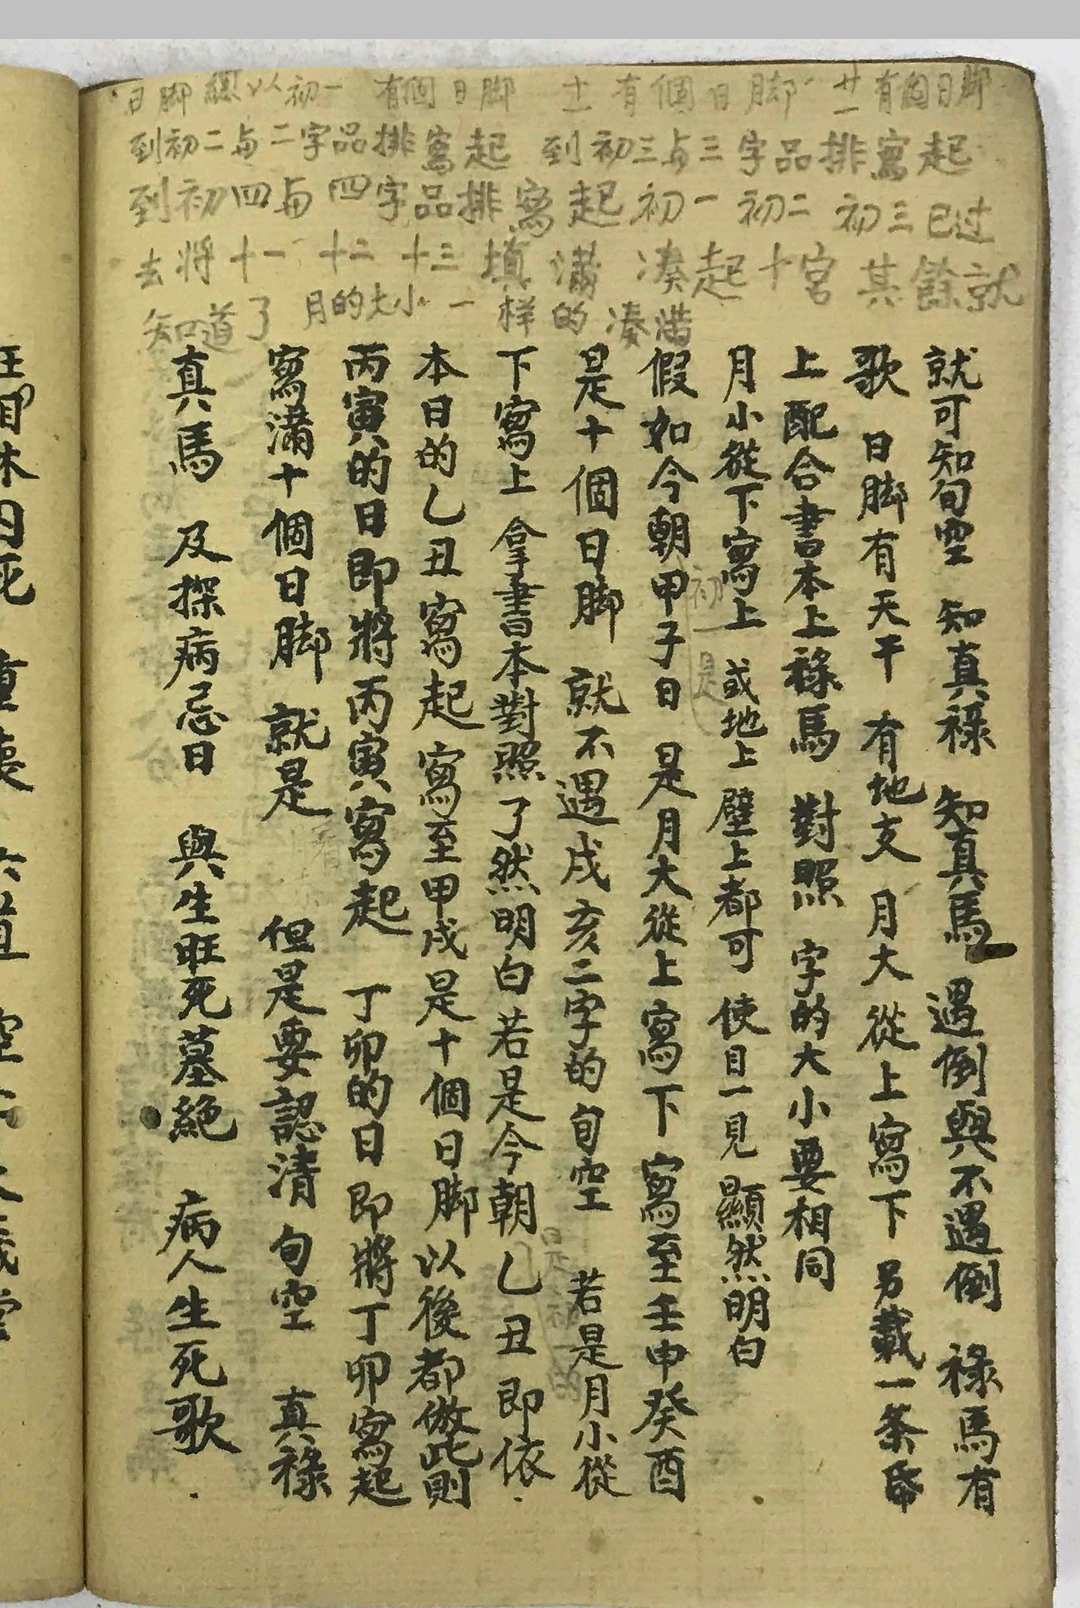 日脚總以初一 有個日脚 十一有個日脚 廿一有個日脚
到初二与二字品排寫起 到初三与三字品排寫起
到初四与四字品排寫起 初一 初二 初三已过
去將十一 十二 十三填滿 凑起十宮 其餘就
知道了 月的大小 一样的凑满
就可知旬空 知真禄 知真馬 遇倒與不遇倒 禄馬有
歌 日脚有天干 有地支 月大從上寫下 另裁一条帋
上配合書本上禄馬 對照 字的大小要相同
月小從下寫上 或地上 壁上都可 使目一見顯然明白
假如今朝甲子日 是月大從上寫下 寫至壬申癸酉
初一是
是十個日脚 就不遇戌亥二字的旬空 若是月小從
下寫上 拿書本對照了然明白 若是今朝乙丑 即依
是初一的
本日的乙丑寫起 寫至甲戌是十個日脚 以後都倣此則
丙寅的日即將丙寅寫起 丁卯的日即將丁卯寫起
寫滿十個日脚 就是 但是要認清旬空 真禄
真馬 及探病忌日 與生旺死墓絶 病人生死歌